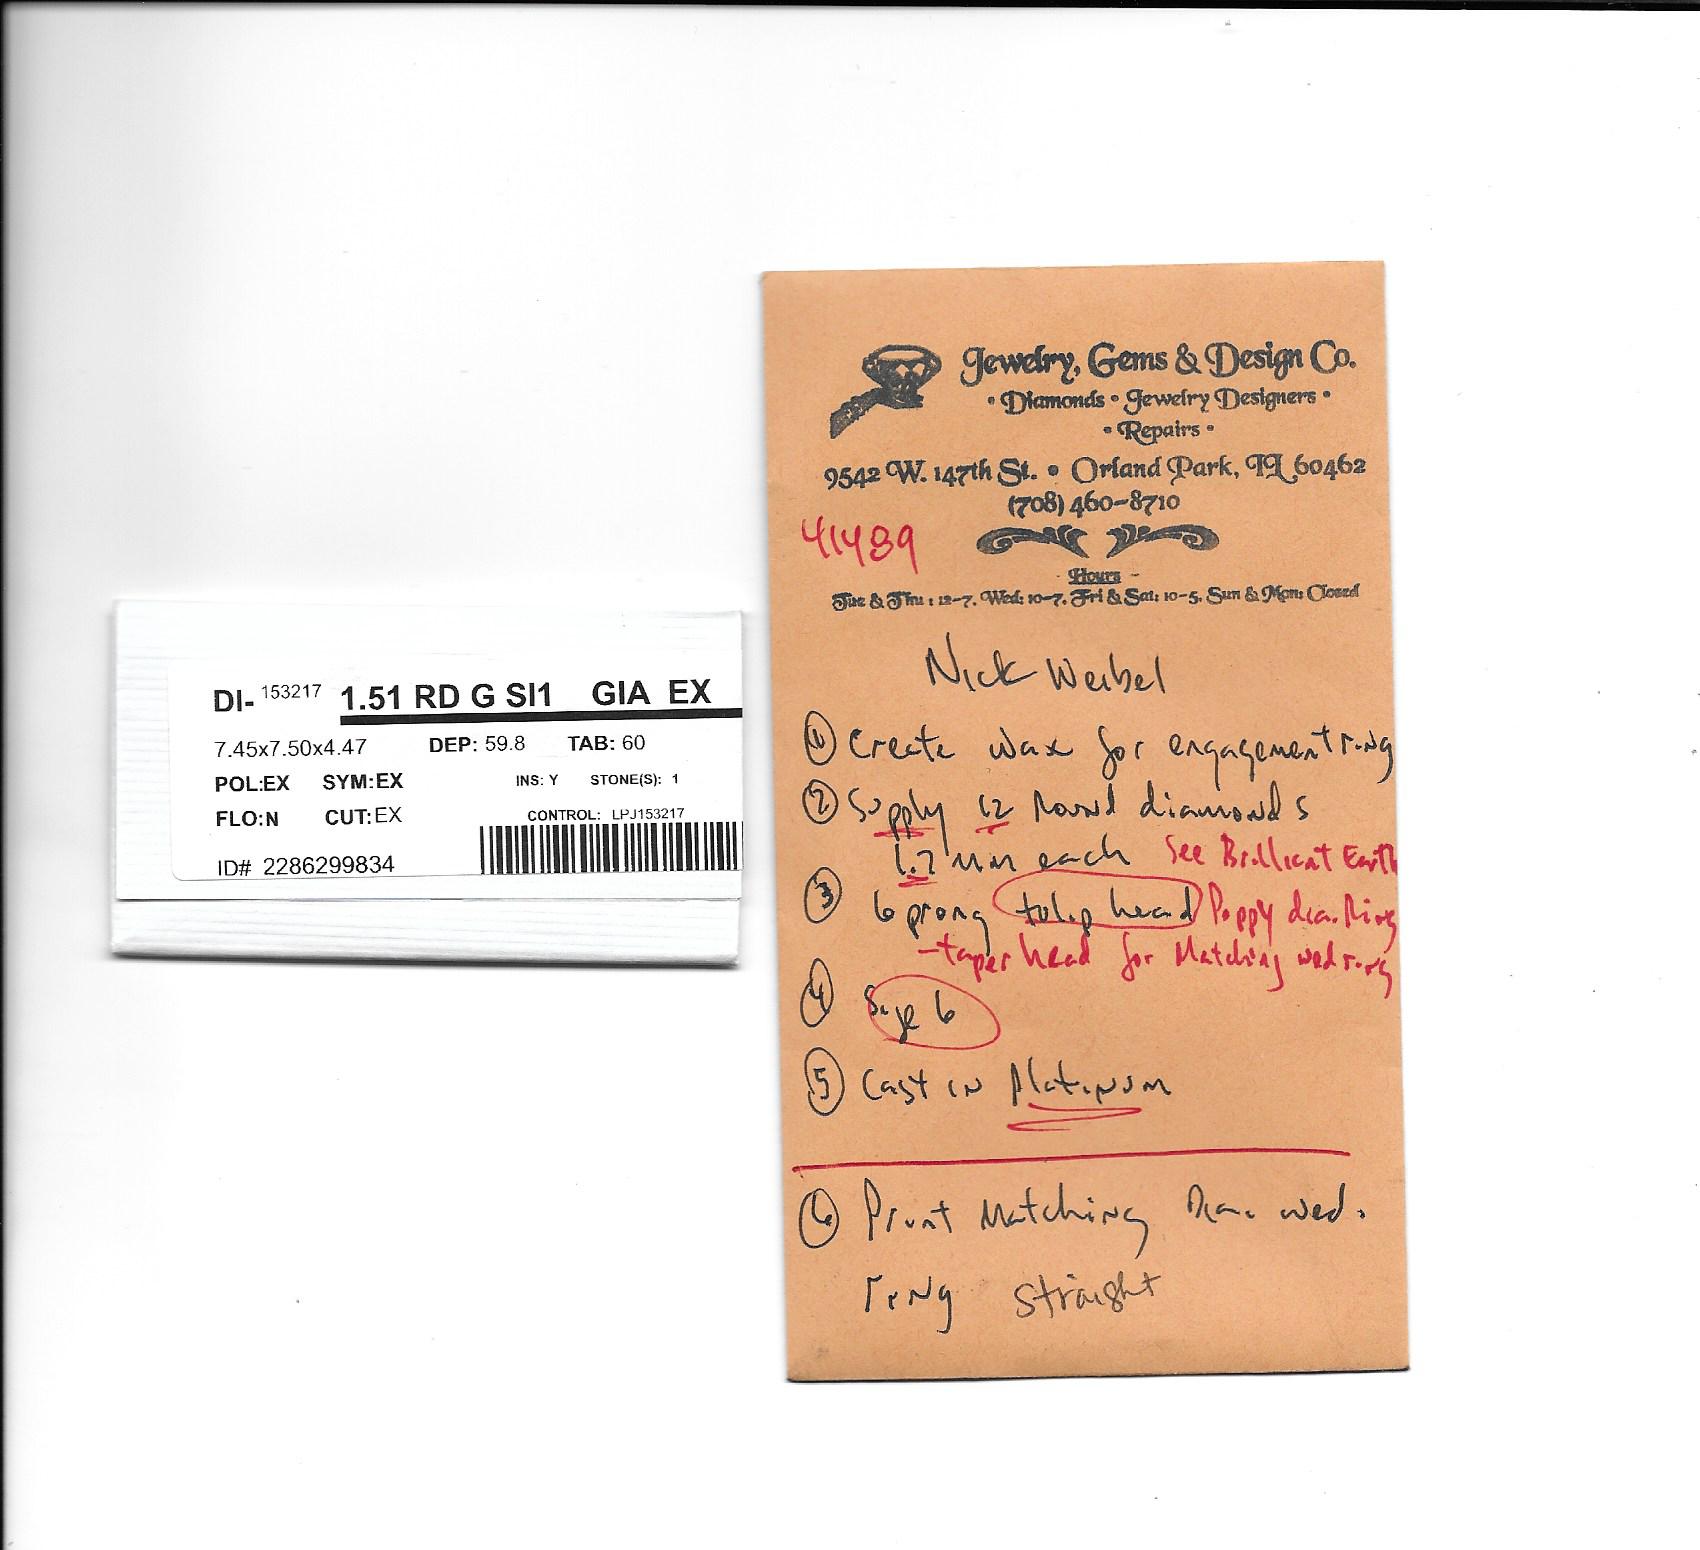 DI- 153217 1.51 RD G SI1 GIA EX
7.45x7.50x4.47 DEP: 59.8 TAB: 60
POL:EX SYM:EX INS: Y STONE(S): 1
FLO:N CUT:EX CONTROL: LPJ153217
ID# 2286299834
Jewelry, Gems & Design Co.
• Diamonds • Jewelry Designers •
• Repairs •
9542 W. 147th St. • Orland Park, IL 60462
(708) 460-8710
41489
Hours
Tue & Thu: 12-7, Wed: 10-7, Fri & Sat: 10-5, Sun & Mon: Closed
Nick Weibel
① Create wax for engagement ring
② Supply 12 Round diamonds
1.7 mm each See Brilliant Earth
③ 6 prong tulip head Poppy dia. Ring
-taper head for Matching wed ring
④ Size 6
⑤ Cast in Platinum
⑥ Print Matching Dia. wed.
ring straight